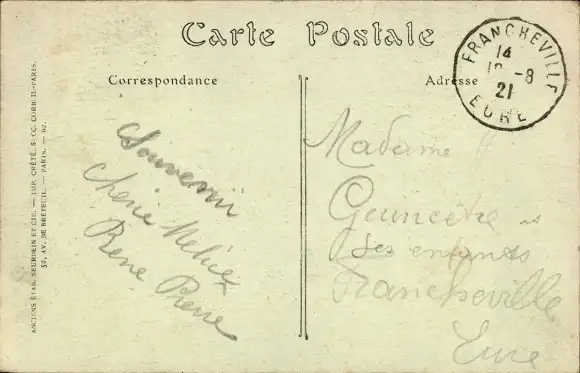 Carte Postale
Correspondance
Adresse
FRANCHEVILLE
14
-8
21
EURE
ANCIENS ETAB. NEURDEIN ET CIE. — IMP. CRÉTÉ, SUCC. CORBEIL-PARIS.
52, AV. DE BRETEUIL. — PARIS. — 82.
Souvenir
René Pierre
Madame
Les enfants
Francheville
Eure